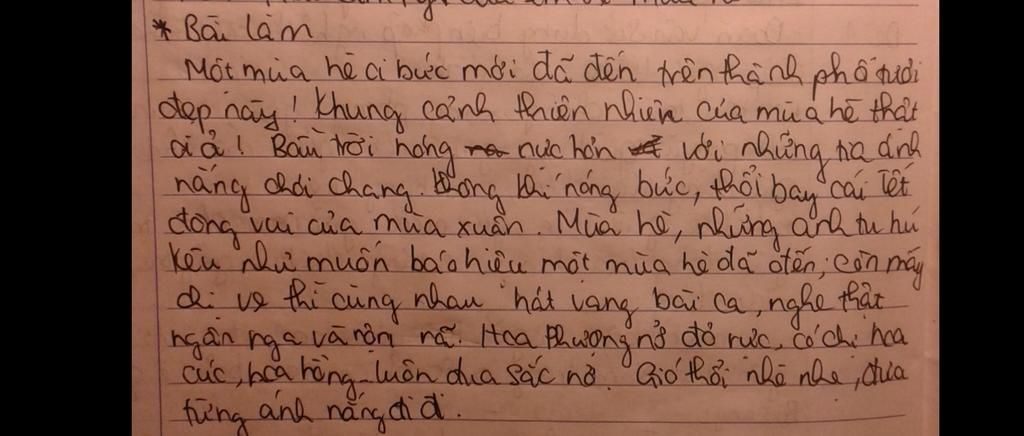 * Bài làm
Một mùa hè oi bức mới đã đến trên thành phố tươi
đẹp này! Khung cảnh thiên nhiên của mùa hè thật
oi ả! Bầu trời nóng nực hơn với những tia ánh
nắng chói chang. Không khí nóng bức, thổi bay cái Tết
đông vui của mùa xuân. Mùa hè, những anh tu hú
kêu như muốn báo hiệu một mùa hè đã đến, còn mấy
chị ve thì cùng nhau hát vang bài ca, nghe thật
ngân nga và rộn rã. Hoa Phượng nở đỏ rực, có chị hoa
cúc, hoa hồng luôn đua sắc nở. Gió thổi nhè nhẹ, đưa
từng ánh nắng đi đ.